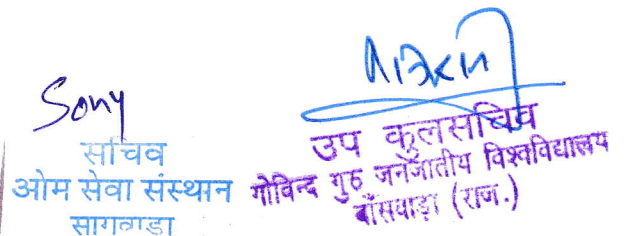 Sony
सचिव
ओम सेवा संस्थान
सागवाडा
उप कुलसचिव
गोविन्द गुरु जनजातीय विश्वविद्यालय
बाँसवाड़ा (राज.)